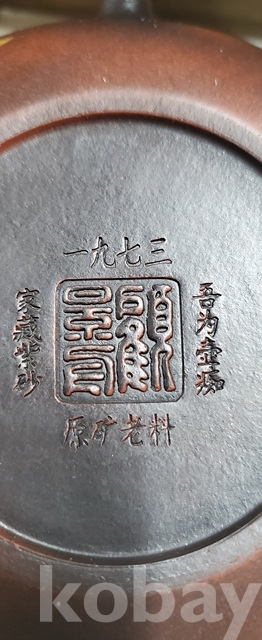 一九七三
家藏紫砂
顧景舟
吾为壶痴
原矿老料
kobay